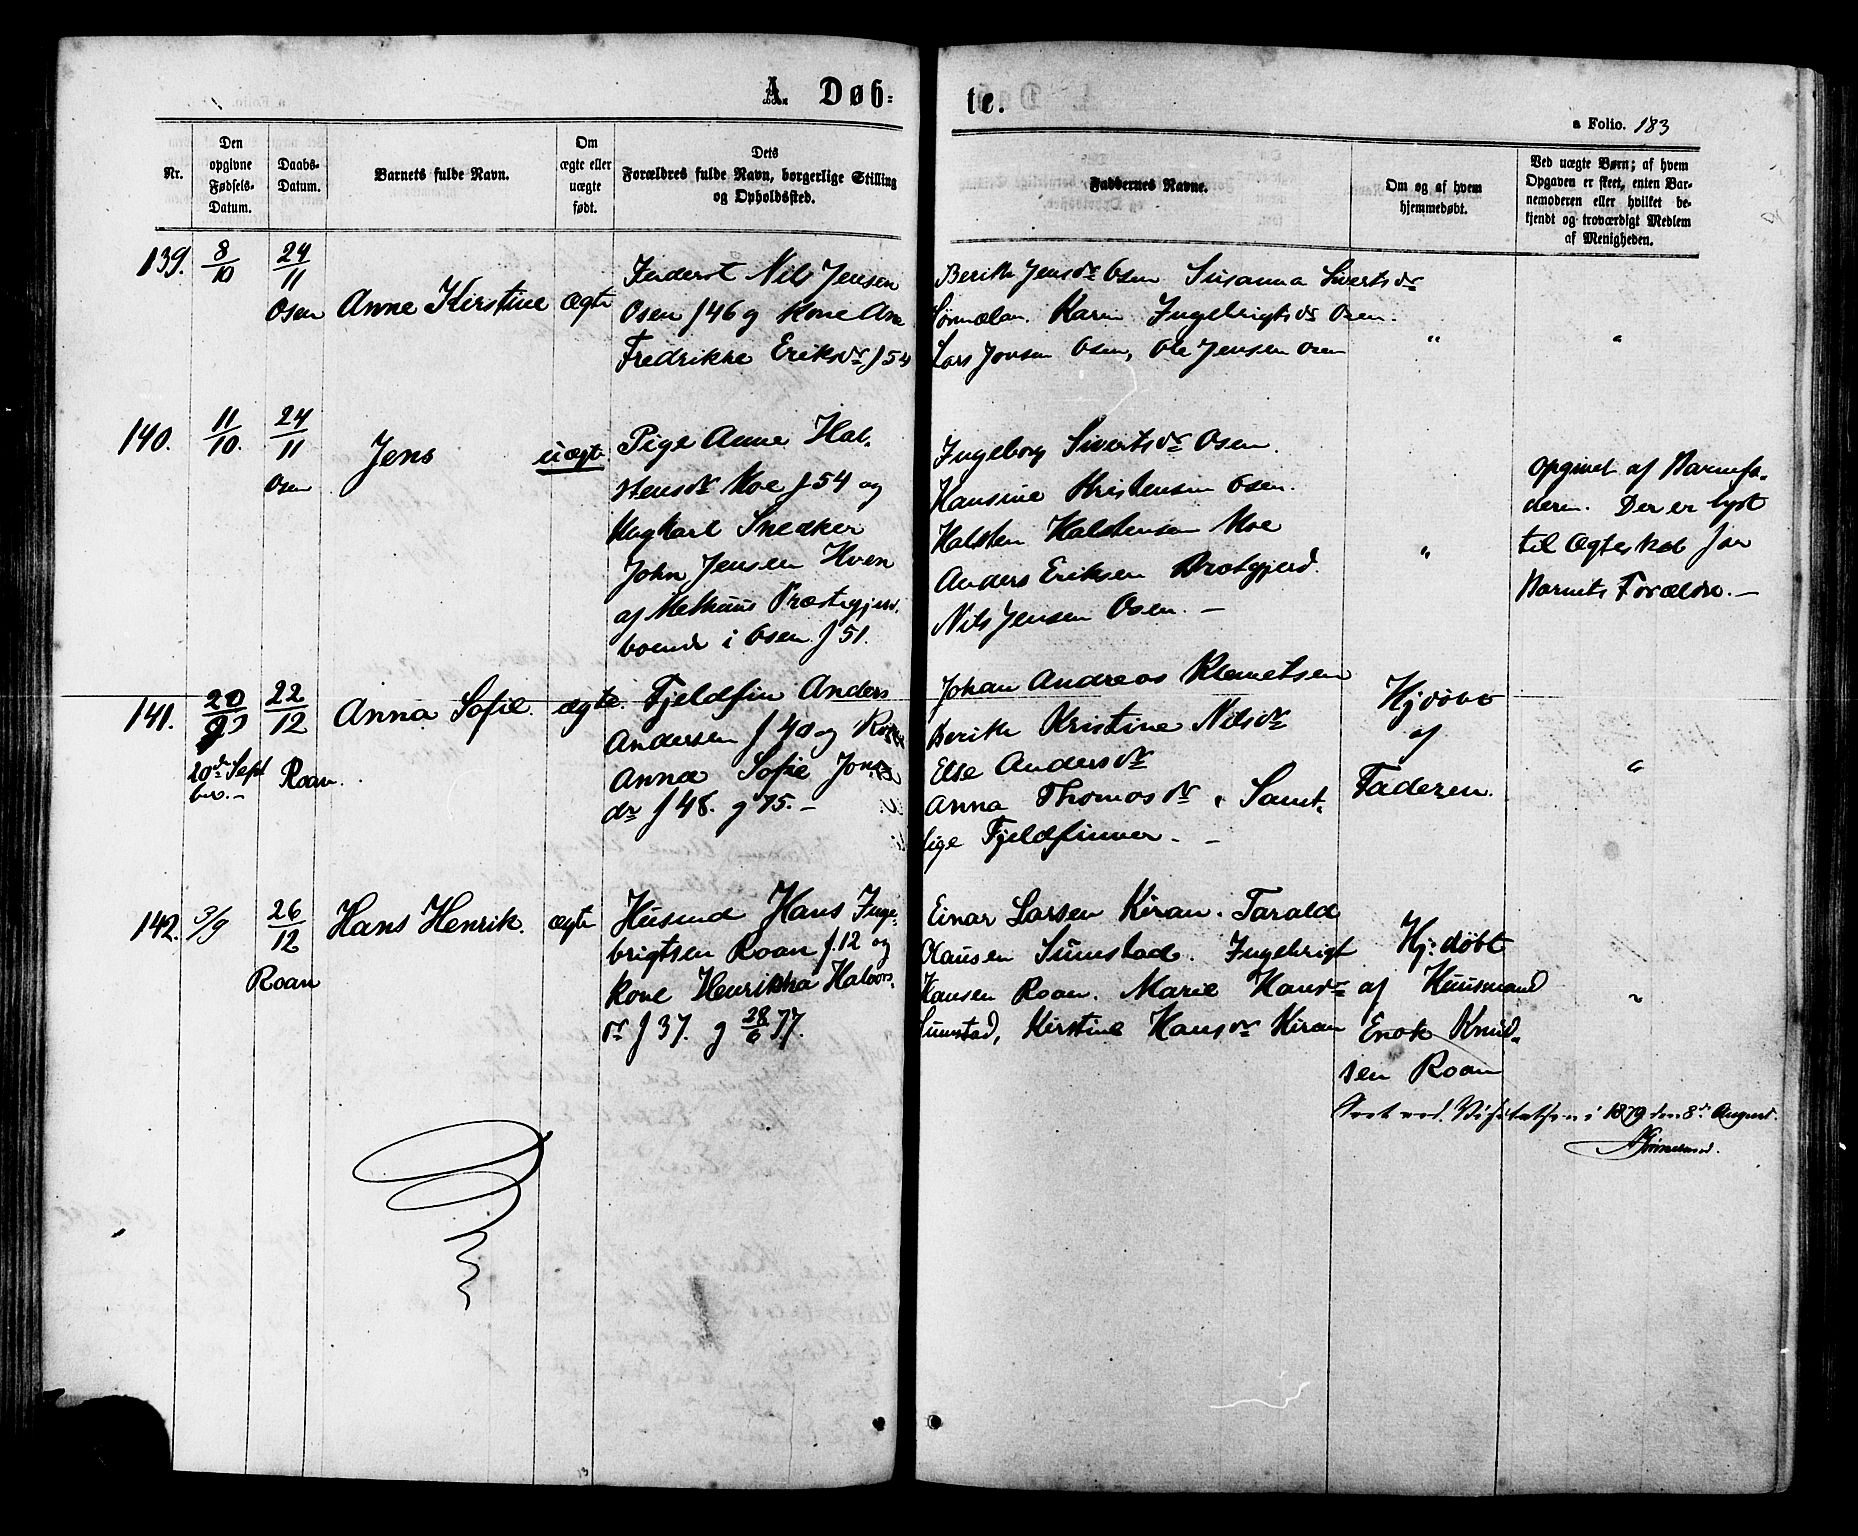 A. Døb=
te.
a Folio. 183
Nr.
Den
opgivne
Fødsels-
Datum.
Daabs-
Datum.
Barnets fulde Navn.
Om
ægte eller
uægte
født.
Dets
Forældres fulde Navn, borgerlige Stilling
og Opholdssted.
Faddernes Navne.
Om og af hvem
hjemmedøbt.
Ved uægte Børn; af hvem
Opgaven er skeet, enten Bar-
nemoderen eller hvilket be-
kjendt og troværdigt Medlem
af Menigheden.
139.
8/10
24/11
Osen
Anne Kirstine
ægte
Inderst Nils Jensen
Osen f 46 og Kone Ane
Fredrikke Eriksdr f 54
Berith Jensdr Osen Susanna Sivertsdr
Karen Ingebrigtsdr Osen.
Lars Jonsen Osen, Ole Jensen Osen
"
"
140.
11/10.
24/11
Osen
Jens
uægte
Pige Anne Hal-
stensdr Moe f 54 og
Ungkarl Snedker
John Jensen Hoen
af Melhuus Præstegjeld.
boende i Osen f 51.
Ingeborg Sivertsdr Osen.
Hansine Kristensen Osen.
Halsten Halstensen Moe
Anders Eriksen Bratgjerd.
Nils Jensen Osen. —
"
Opgivet af Barnefa-
deren. Der er lyst
til Ægteskab for
Barnets Forældre. —
141.
20/9
20de Sept
ber. —
22/12
Roan.
Anna Sofie.
ægte.
Fjeldfin Anders
Andersen f 40 og Kone
Anna Sofie Jons
dr f 48. g 75. —
Johan Andreas Klemetsen
Berith Kristine Nilsdr
Else Andersdr
Anna Thomasdr. Samt-
lige Fjeldfinner. —
Hjdøbt
af
Faderen.
"
142.
3/9
26/12
Roan
Hans Henrik.
ægte
Husmd Hans Inge-
brigtsen Roan f. 12 og
Kone Henrikka Halvors-
dr f 37. g 28/6 77.
Einar Larsen Kiran. Tarald
Clausen Sumstad. Ingebrigt
Hansen Roan. Marie Hansdr
Sumstad, Kirstine Hansdr Kiran
Hj: døbt
af Huusmand
Enok Knud-
sen Roan
"
Seet ved Visitatsen i 1879 den 8de August.